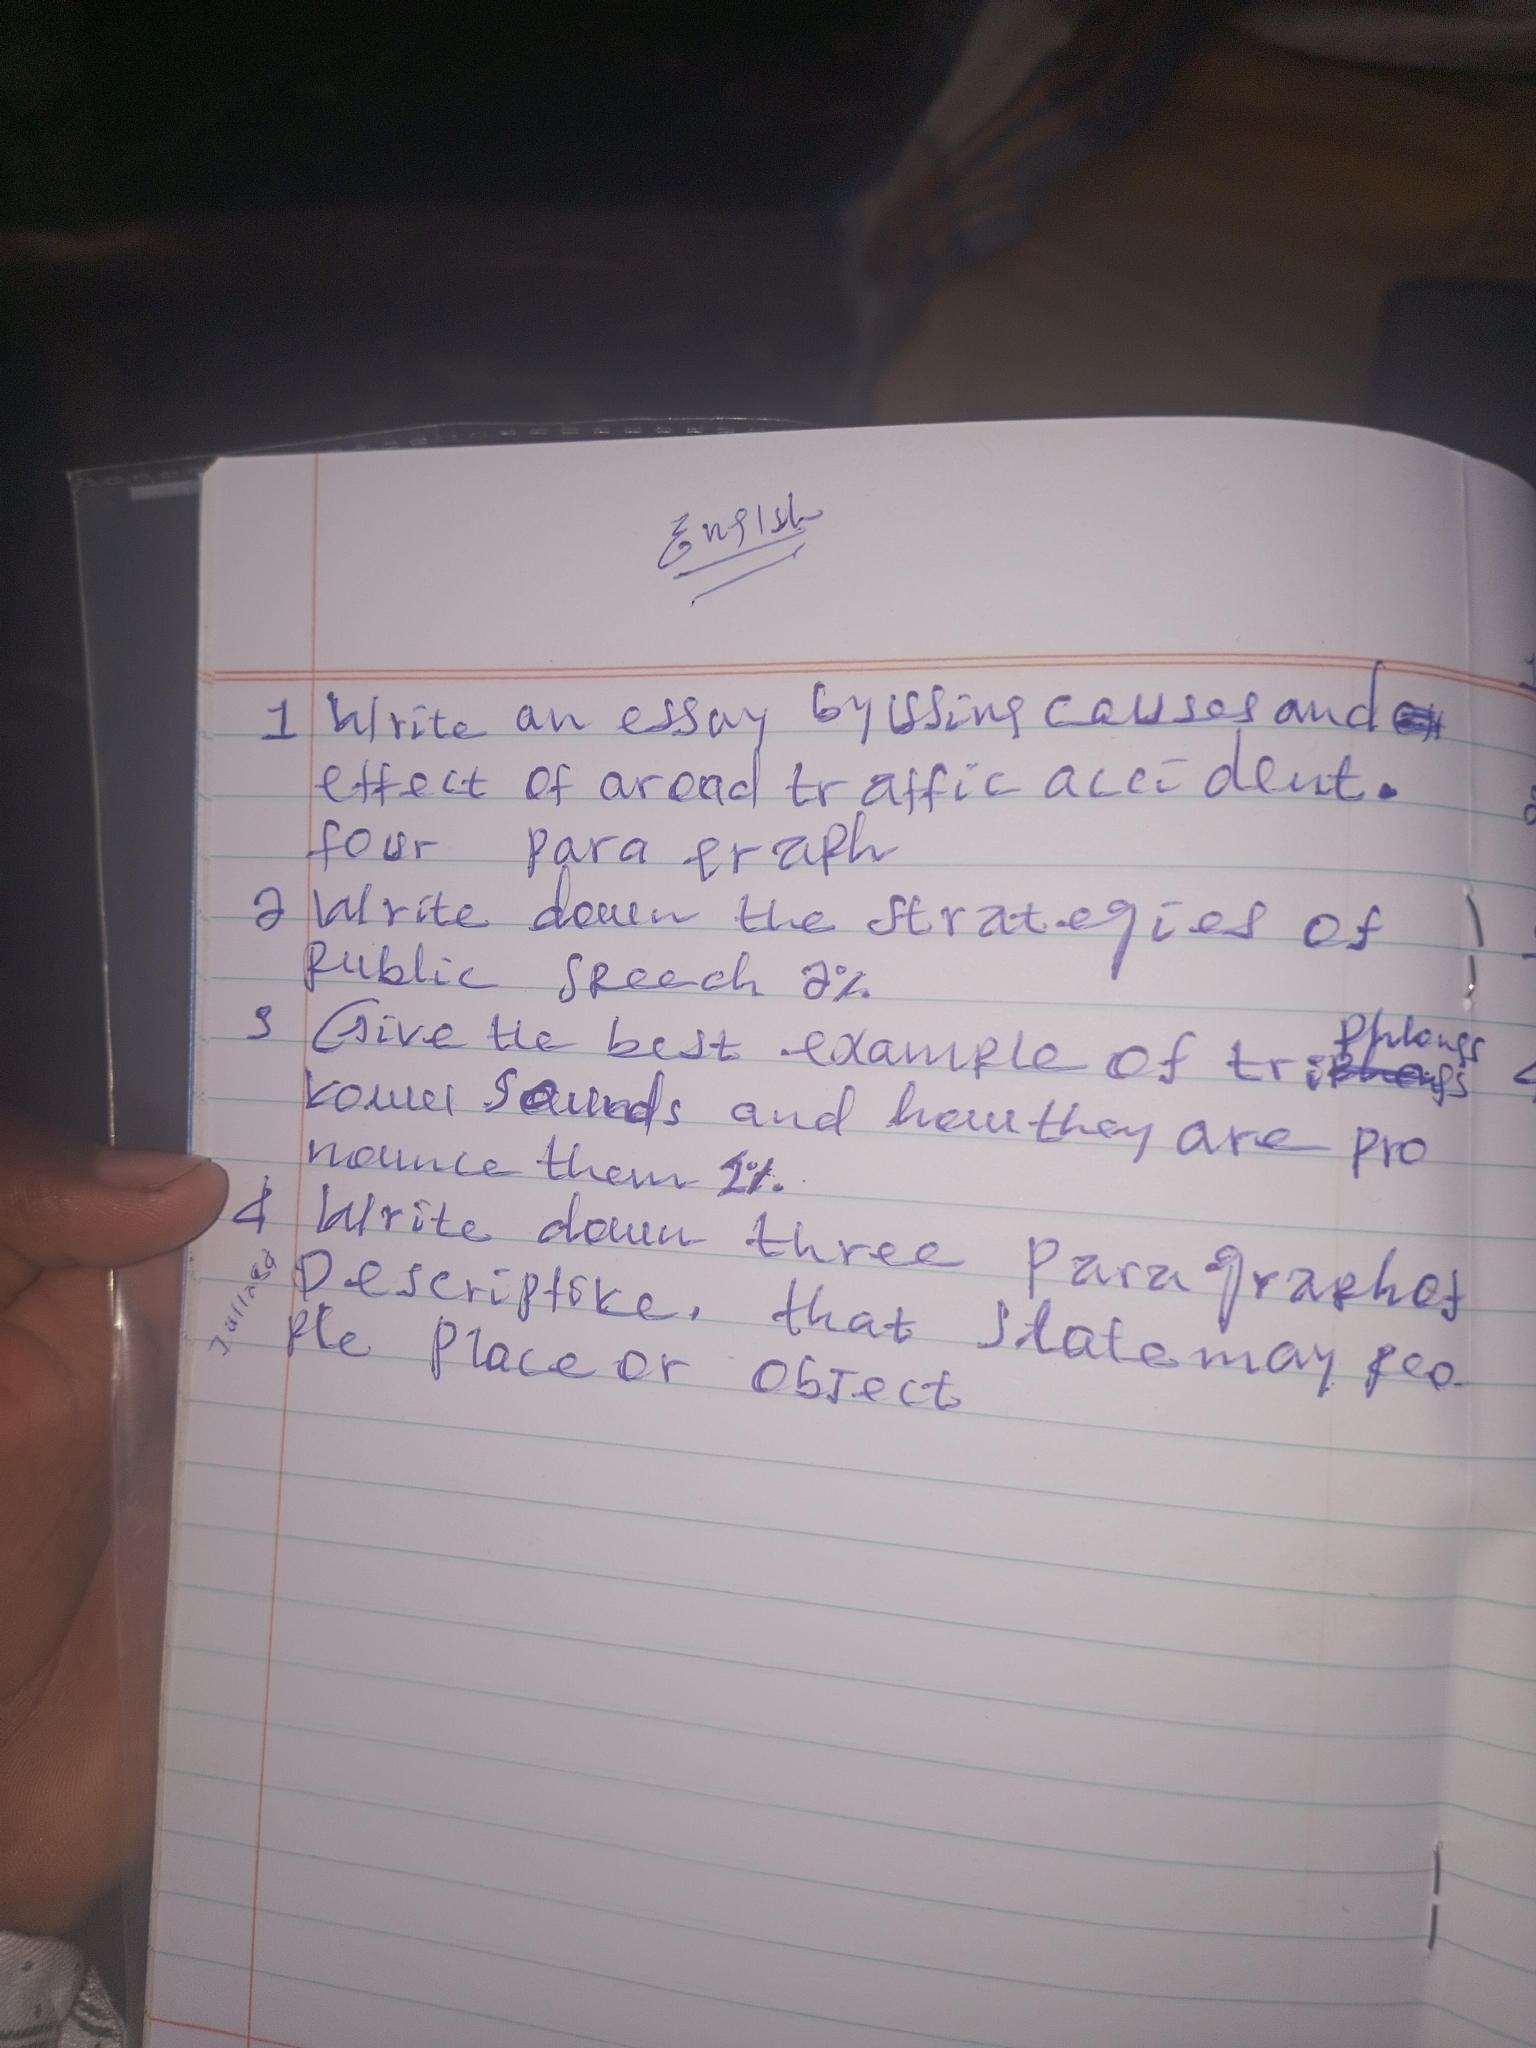 English
1 Write an essay by ussing causes and
effect of aroad traffic accident.
four para graph
2 Write down the strategies of
Public speech 2%
3 Give the best example of triphthongs
vowel sounds and how they are pro
nounce them 2%.
4 Write down three paragraph of
Descriptive, that state may peo
ple place or object